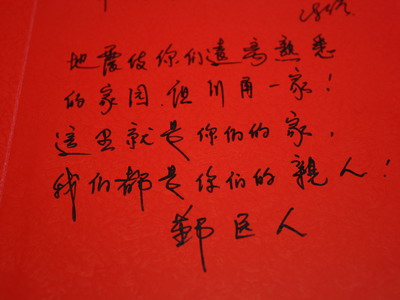 地震使你们遠离熟悉
的家园,但川甬一家!
這里就是你们的家,
我们都是你们的親人!
鄞区人